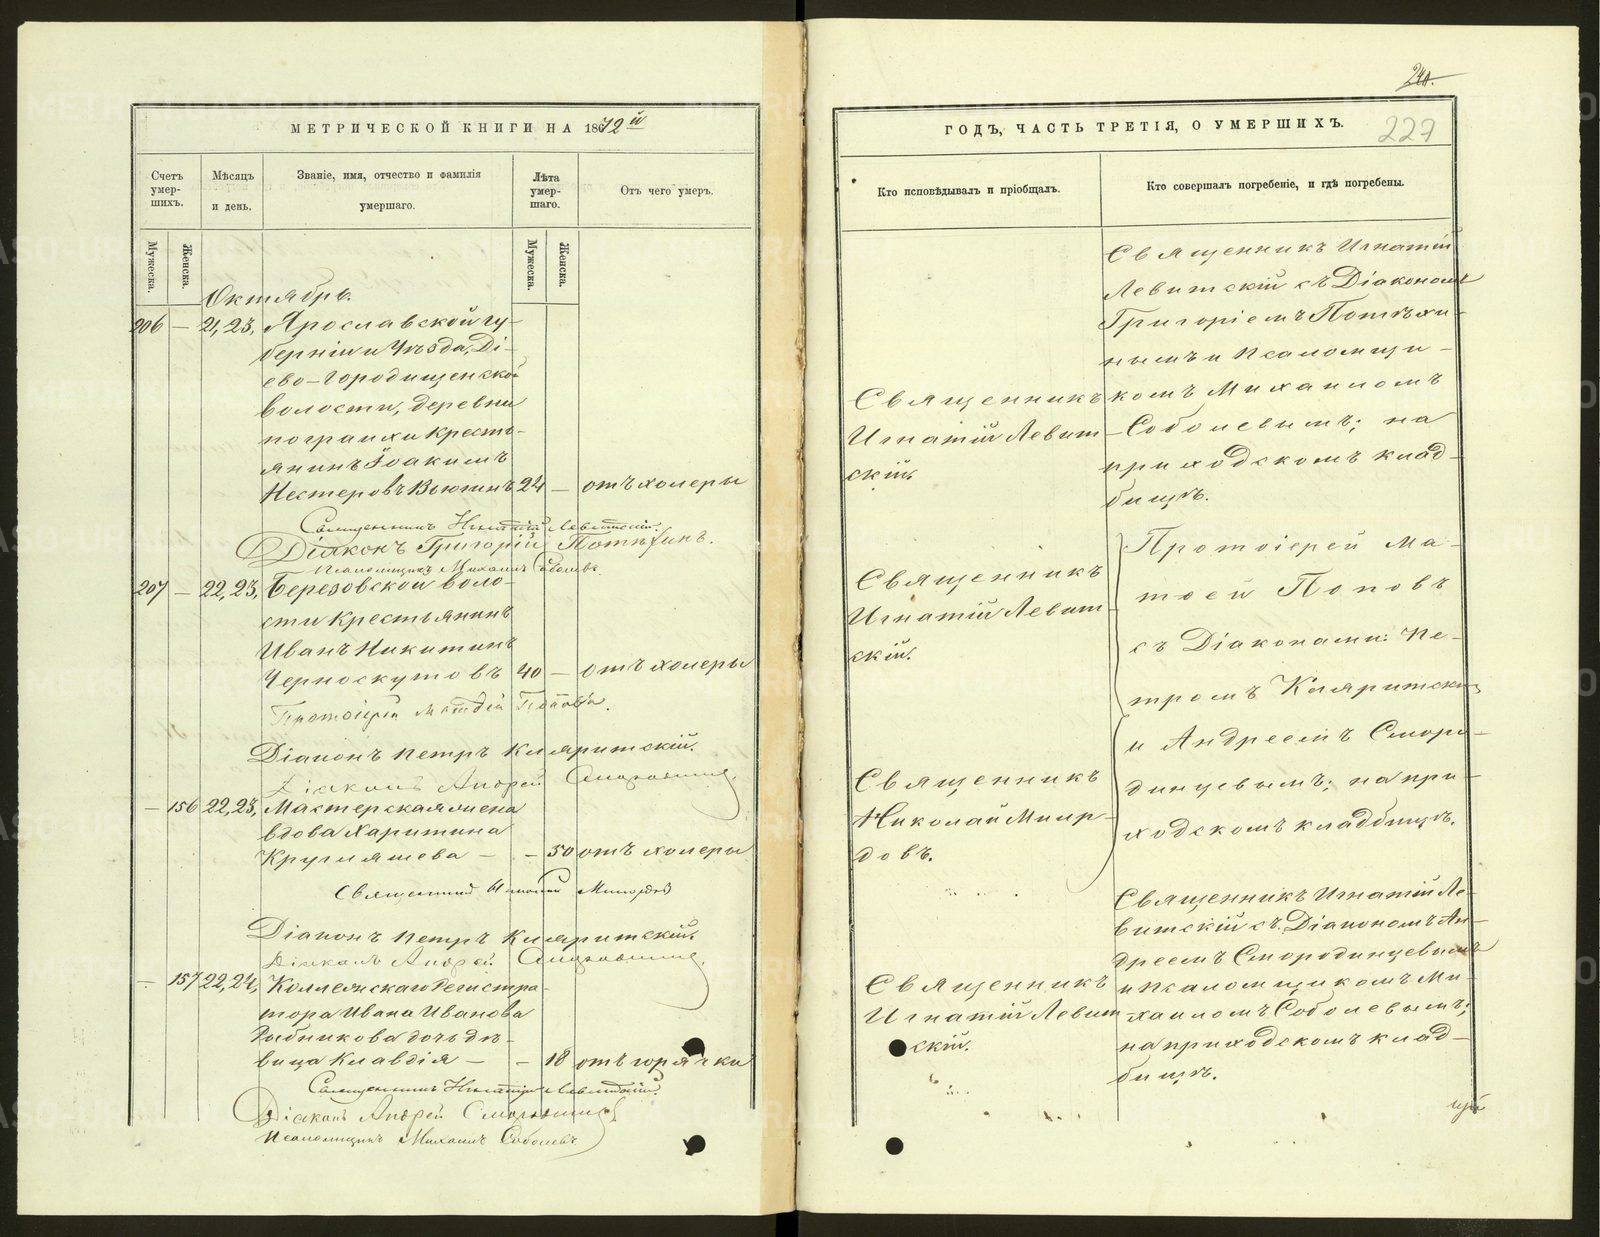 МЕТРИЧЕСКОЙ КНИГИ НА 1872й
Счетъ умер-шихъ.
Мѣсяцъ и день.
Званіе, имя, отчество и фамилія умершаго.
Лѣта умер-шаго.
Отъ чего умеръ.
Мужеска.
Женска.
Мужеска.
Женска.
Октябрь.
206 — 21, 23, Ярославской гу-
берніи и Уѣзда, Ді-
ево-Городищенской
волости, деревни
крестъ-
янинъ Іоакимъ
Нестеровъ Вьюгинъ 24 — отъ холеры
Священникъ Игнатій Левитскій.
Діаконъ Григорій Потѣхинъ.
Псаломщикъ Михаилъ Соболевъ
207 — 22, 23, Березовской воло-
сти крестьянинъ
Иванъ Никитинъ
Черноскутовъ 40 — отъ холеры
Протоіерей Матѳій Поповъ.
Діаконъ Петръ Кляритскій.
Діаконъ Андрей Смородинцев
— 156 22, 23, Мастерская жена
вдова Харитина
Кругляшева — — 50 отъ холеры
Священникъ Николай Миирдовъ
Діаконъ Петръ Кляритскій.
Діаконъ Андрей Смородинцев
— 157 22, 24, Коллежскаго Регистра-
тора Ивана Иванова
Рыбникова дочь дѣ-
вица Клавдія — — 18 отъ горячки
Священникъ Игнатій Левитскій.
Діаконъ Андрей Смородинцев
Псаломщикъ Михаилъ Соболевъ
240.
227
ГОДЪ, ЧАСТЬ ТРЕТІЯ, О УМЕРШИХЪ.
Кто исповѣдывалъ и пріобщалъ.
Кто совершалъ погребеніе, и гдѣ погребены.
Священникъ
Игнатій Левит-
скій.
Священникъ Игнатій
Левитскій съ Діакономъ
Григоріемъ Потѣхи-
нымъ и Псаломщи-
комъ Михаиломъ
Соболевымъ; на
приходскомъ клад-
бищѣ.
Священникъ
Игнатій Левит-
скій.
Священникъ
Николай Миир-
довъ.
Протоіерей Ма-
тѳей Поповъ
съ Діаконами: Пе-
тромъ Кляритским
и Андреемъ Сморо-
динцевымъ; на при-
ходскомъ кладбищѣ.
Священникъ
Игнатій Левит-
скій.
Священникъ Игнатій Ле-
витскій съ Діакономъ Ан-
дреемъ Смородинцевымъ
и Псаломщикомъ Ми-
хаиломъ Соболевымъ;
на приходскомъ клад-
бищѣ.